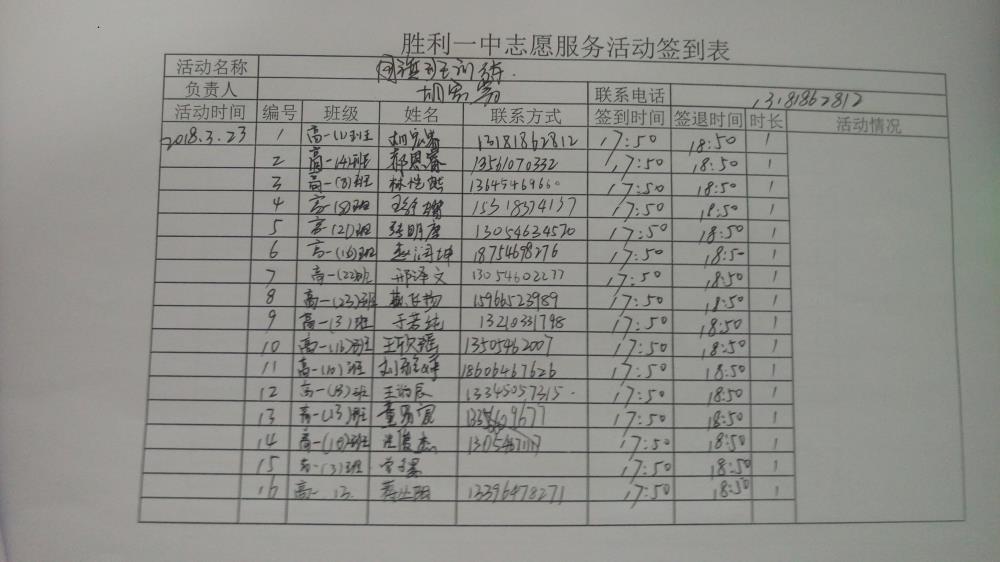 胜利一中志愿服务活动签到表
活动名称 国旗班训练.
负责人 联系电话 13181862812
活动时间 编号 班级 姓名 联系方式 签到时间 签退时间 时长 活动情况
2018.3.23 1 高一(1)班 13181862812 17:50 18:50 1
2 高一(4)班 郝恩睿 13561070332 17:50 18:50 1
3 高一(8)班 13645469660 17:50 18:50 1
4 高一(8)班 15318374137 17:50 18:50 1
5 高一(21)班 张明唐 13054634570 17:50 18:50 1
6 高一(16)班 赵润坤 18754698276 17:50 18:50 1
7 高一(22)班 邢泽文 13054602277 17:50 18:50 1
8 高一(23)班 15966523989 17:50 18:50 1
9 高一(3)班 于若纯 13210331798 17:50 18:50 1
10 高一(16)班 王欣瑶 13505462007 17:50 18:50 1
11 高一(10)班 18606467626 17:50 18:50 1
12 高一(18)班 13345057315 17:50 18:50 1
13 高一(13)班 17:50 18:50 1
14 高一(18)班 17:50 18:50 1
15 高一(3)班 17:50 18:50 1
16 高一 13 13396478271 17:50 18:50 1